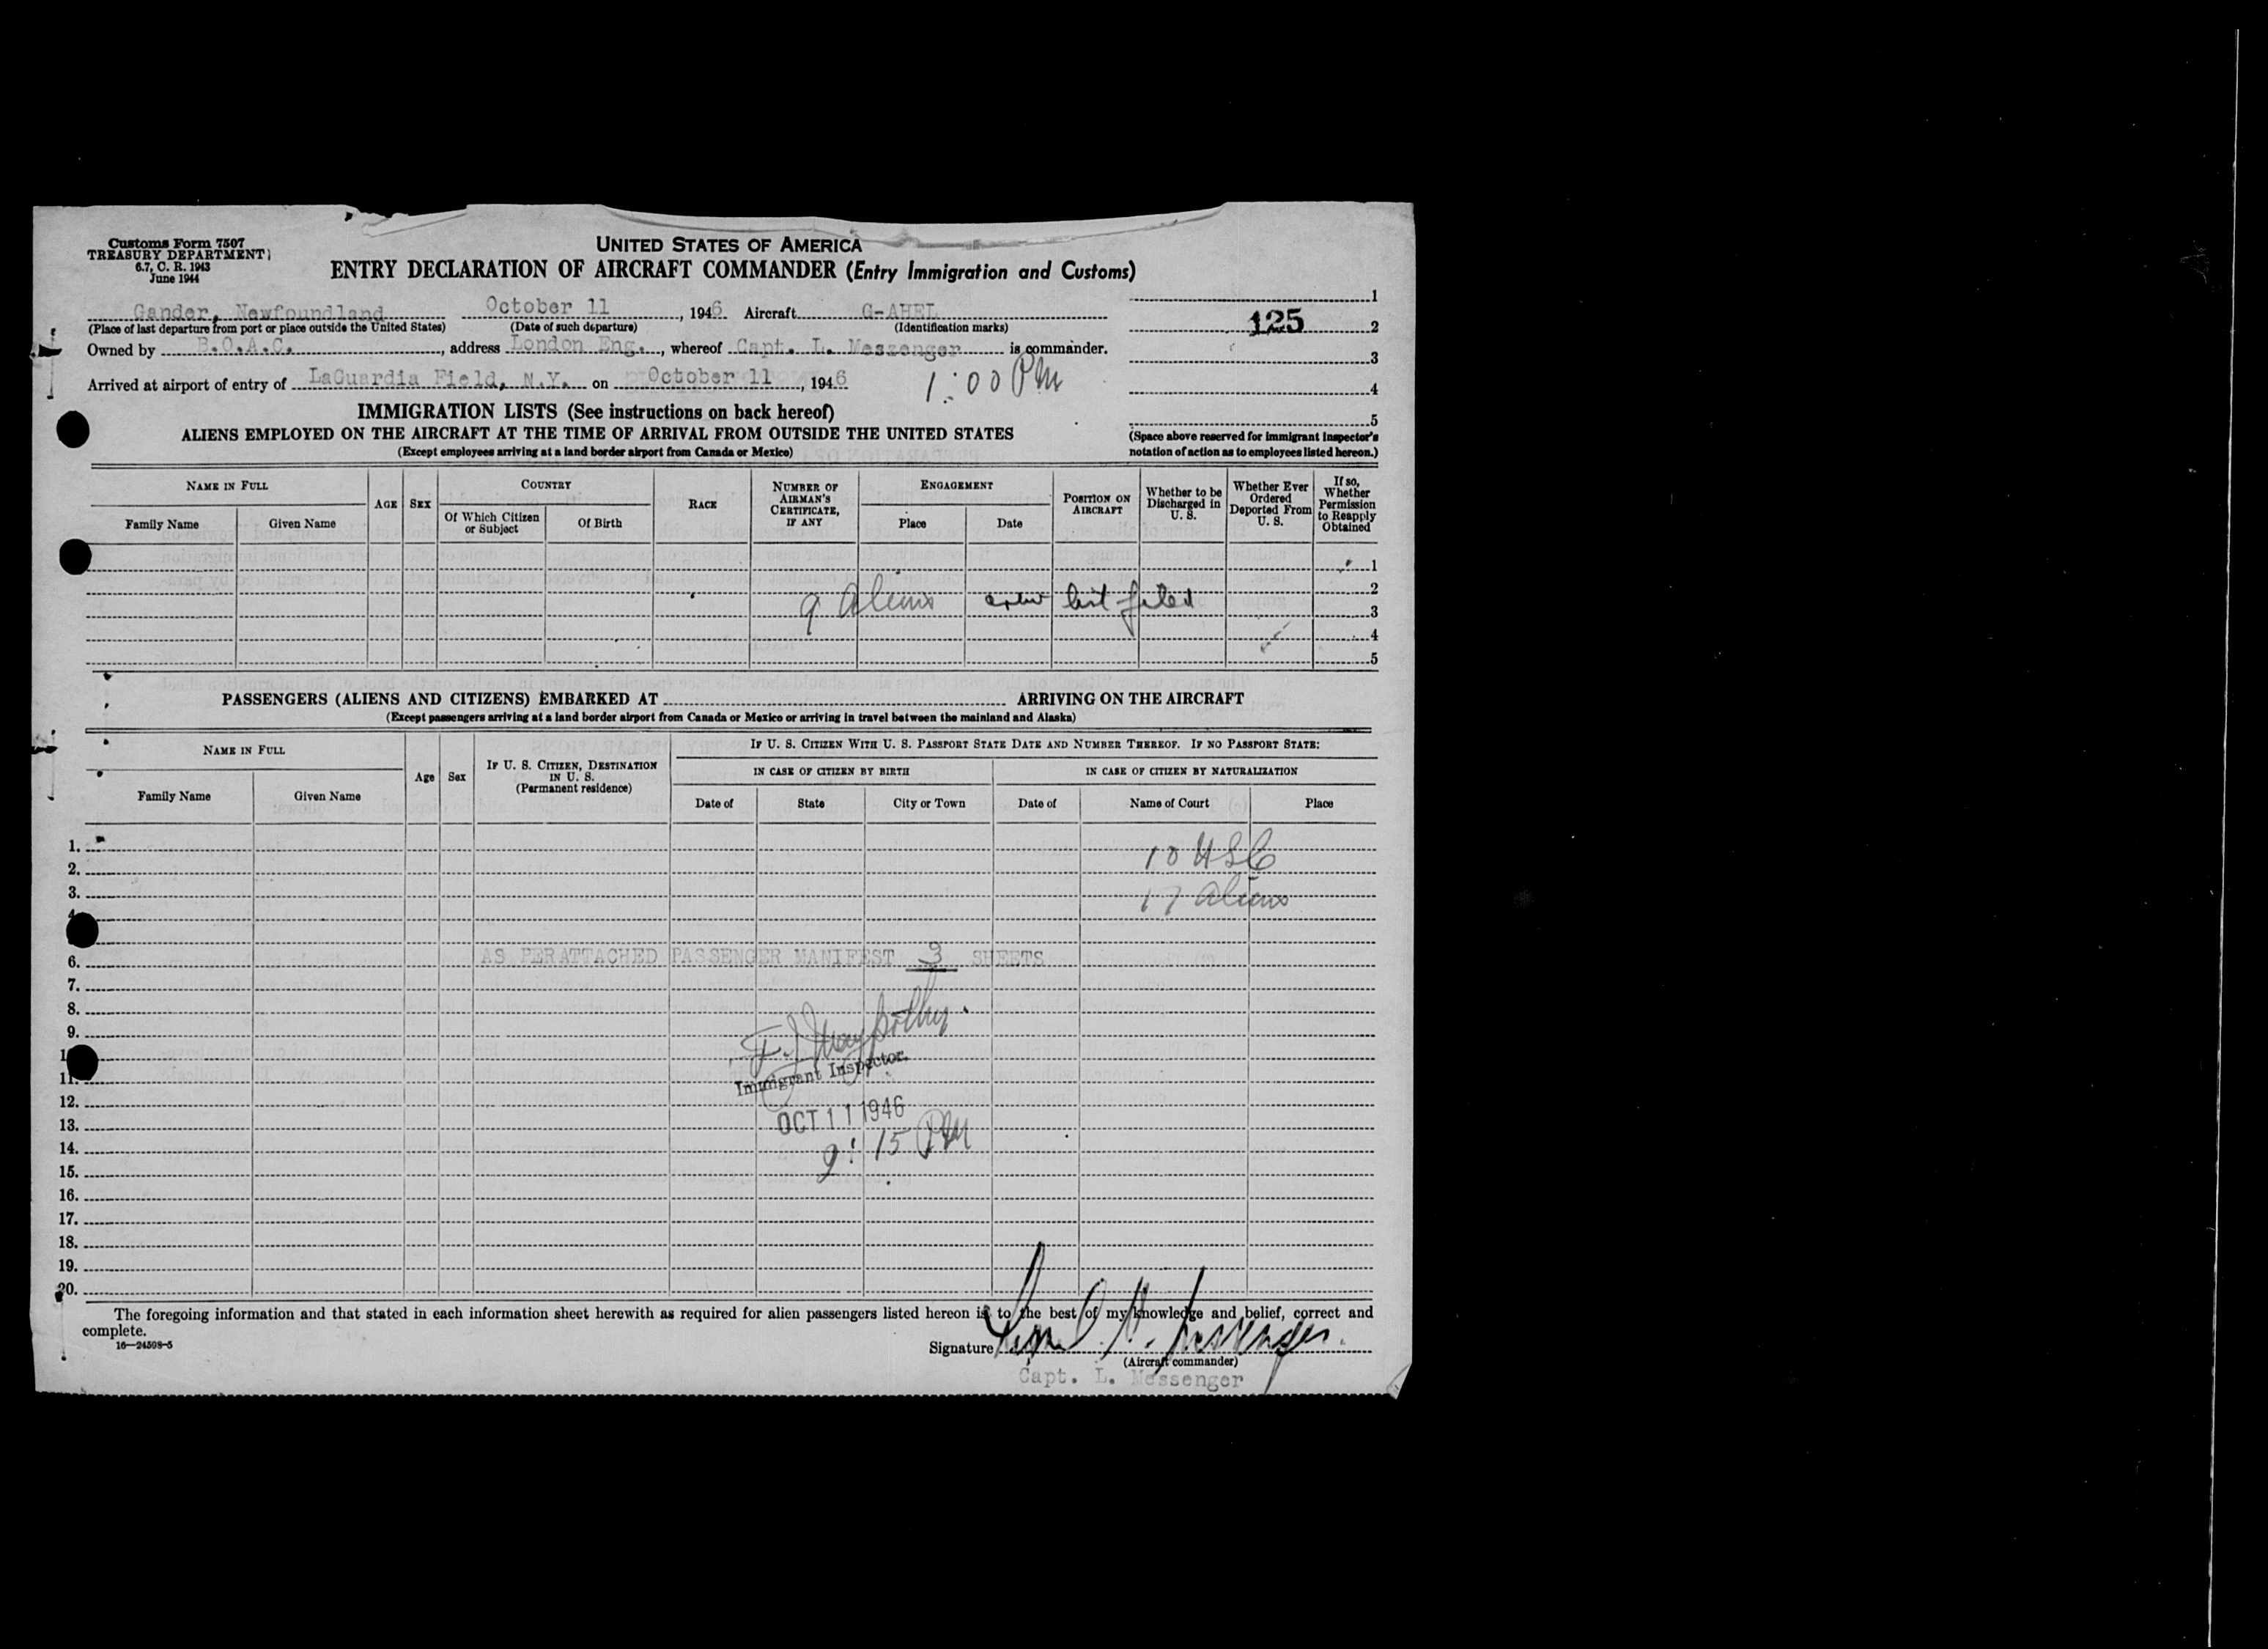 Customs Form 7507
TREASURY DEPARTMENT
6.7, C. R. 1943
June 1944
UNITED STATES OF AMERICA
ENTRY DECLARATION OF AIRCRAFT COMMANDER (Entry Immigration and Customs)
Gander, Newfoundland October 11, 1946 Aircraft G-AHEL
(Place of last departure from port or place outside the United States) (Date of such departure) (Identification marks)
Owned by B.O.A.C., address London Eng., whereof Capt. L. Messenger is commander.
Arrived at airport of entry of LaGuardia Field, N.Y. on October 11, 1946 1:00 PM
1
125 2
3
4
5
(Space above reserved for immigrant inspector's
notation of action as to employees listed hereon.)
IMMIGRATION LISTS (See instructions on back hereof)
ALIENS EMPLOYED ON THE AIRCRAFT AT THE TIME OF ARRIVAL FROM OUTSIDE THE UNITED STATES
(Except employees arriving at a land border airport from Canada or Mexico)
NAME IN FULL
Family Name Given Name
AGE
SEX
COUNTRY
Of Which Citizen or Subject Of Birth
RACE
NUMBER OF AIRMAN'S CERTIFICATE, IF ANY
ENGAGEMENT
Place Date
POSITION ON AIRCRAFT
Whether to be Discharged in U. S.
Whether Ever Ordered Deported From U. S.
If so, Whether Permission to Reapply Obtained
1
2
9 Aliens crew list filed
3
4
5
PASSENGERS (ALIENS AND CITIZENS) EMBARKED AT ARRIVING ON THE AIRCRAFT
(Except passengers arriving at a land border airport from Canada or Mexico or arriving in travel between the mainland and Alaska)
NAME IN FULL
Family Name Given Name
Age
Sex
IF U. S. CITIZEN, DESTINATION IN U. S.
(Permanent residence)
IF U. S. CITIZEN WITH U. S. PASSPORT STATE DATE AND NUMBER THEREOF. IF NO PASSPORT STATE:
IN CASE OF CITIZEN BY BIRTH IN CASE OF CITIZEN BY NATURALIZATION
Date of State City or Town Date of Name of Court Place
1.
10 USC
2.
3.
17 Aliens
4
6. AS PER ATTACHED PASSENGER MANIFEST 3 SHEETS
7.
8.
9.
1
11.
Immigrant Inspector
12.
OCT 11 1946
13.
14.
9:15 PM
15.
16.
17.
18.
19.
20.
The foregoing information and that stated in each information sheet herewith as required for alien passengers listed hereon is to the best of my knowledge and belief, correct and
complete.
16—24598-5
Signature
(Aircraft commander)
Capt. L. Messenger